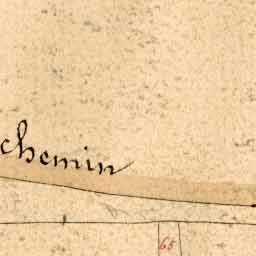 chemin
65